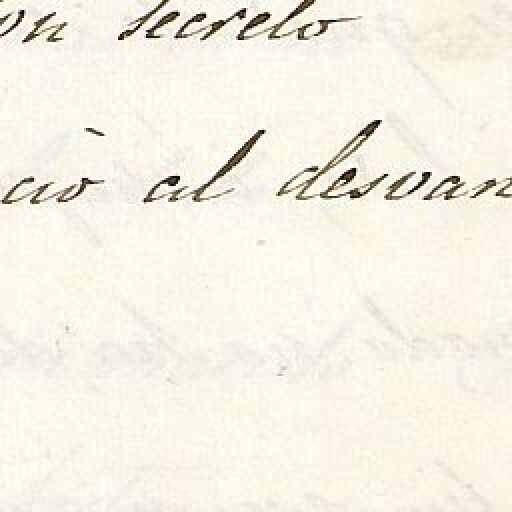 on secreto
ció al desvan